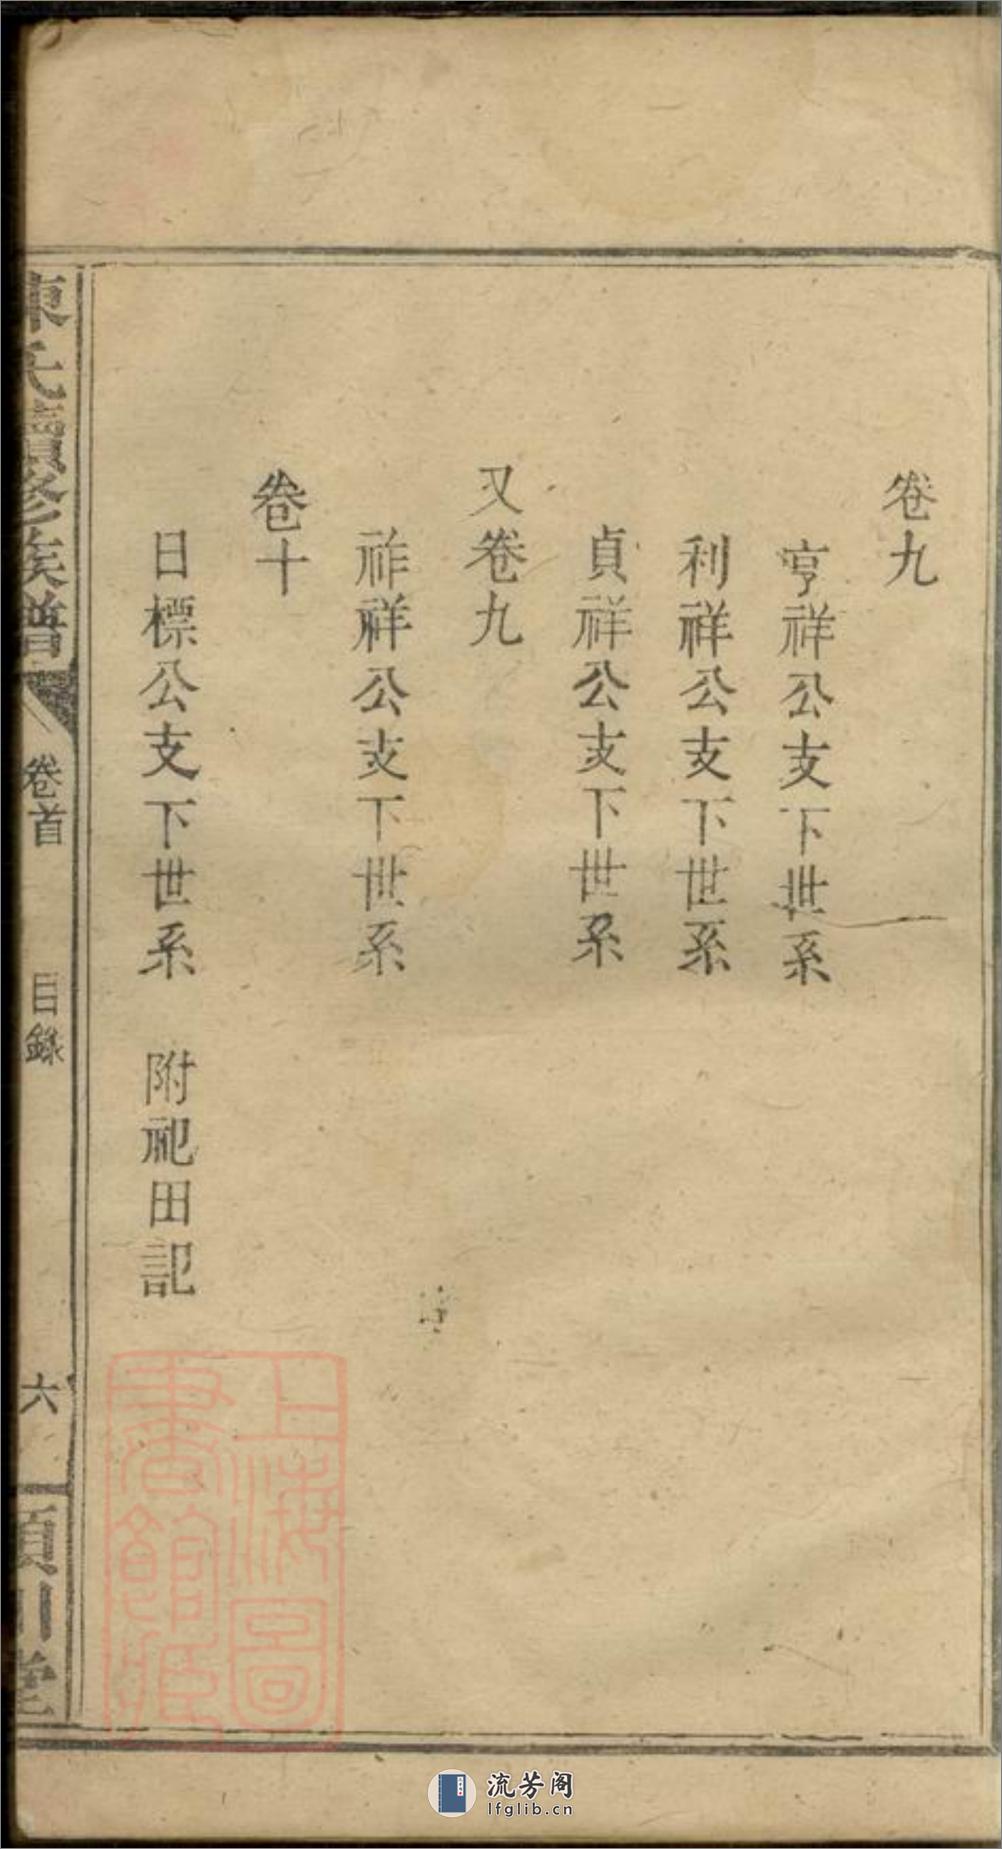 卷九
亨祥公支下世系
利祥公支下世系
貞祥公支下世系
又卷九
祚祥公支下世系
卷十
日標公支下世系 附祀田記
陳氏續修族譜 卷首 目錄 六 潁川堂
上海圖書館藏
流芳阁
lfglib.cn